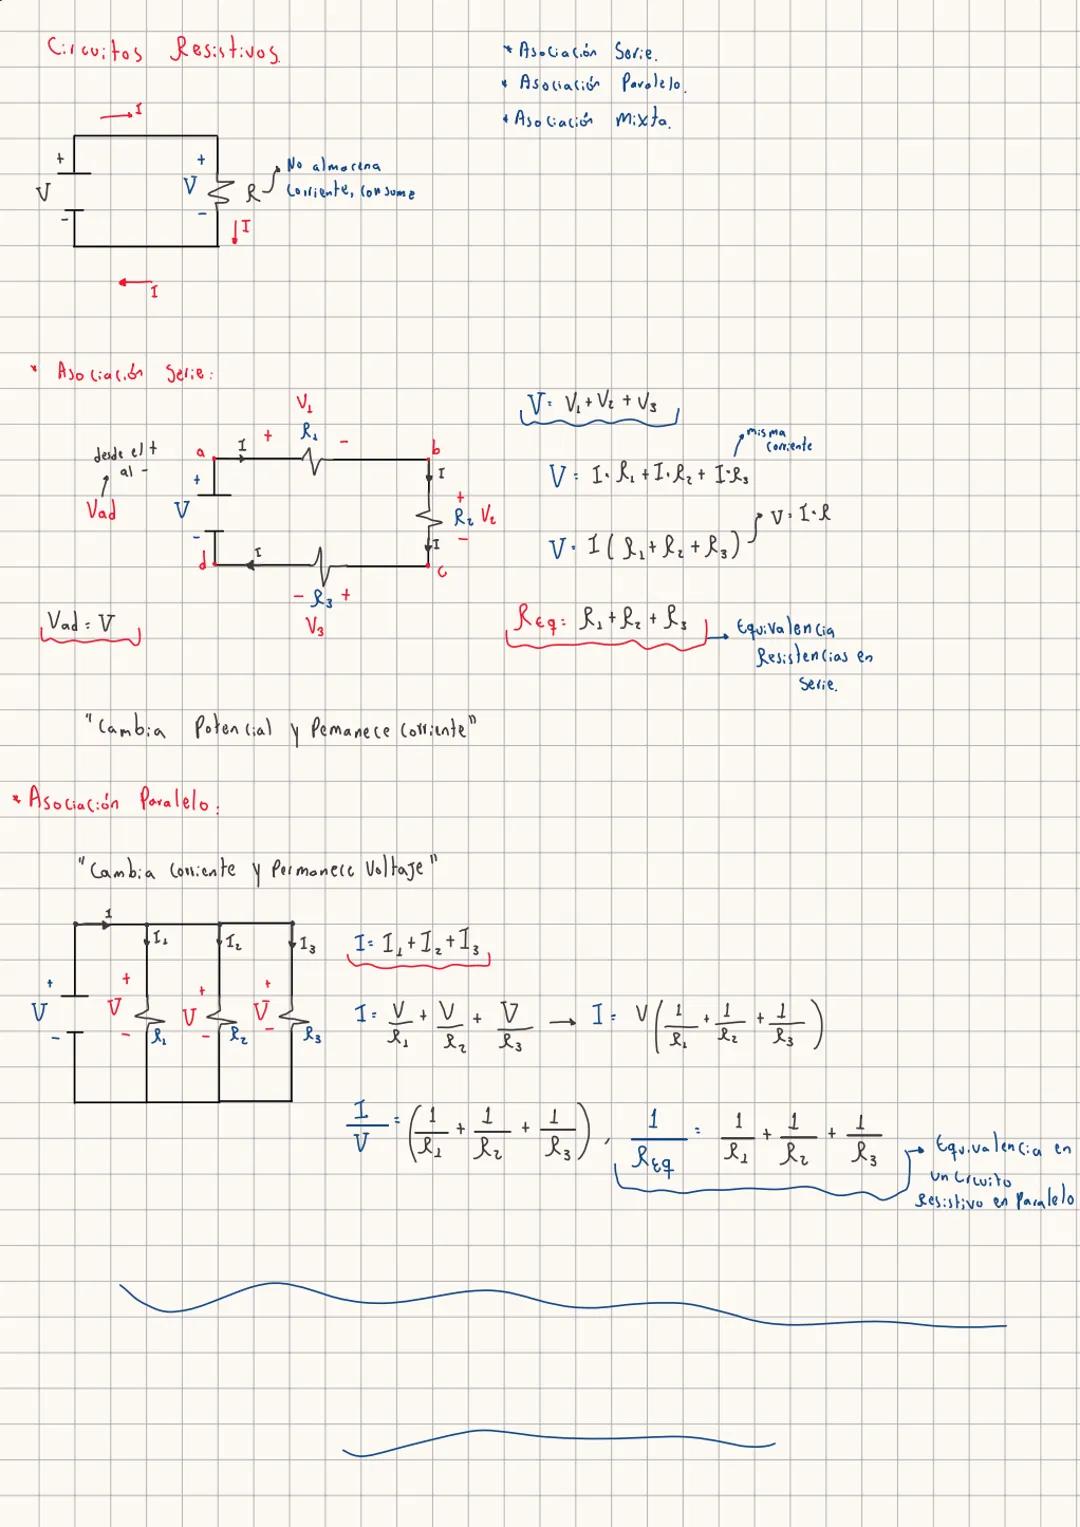 Circuitos Resistivos.
* Asociación Serie.
* Asociación Paralelo.
* Asociación Mixta.
I
+ + 
V V R
- -
No almacena
Corriente, consume
I
I
* Asociación Serie:
V₁
R₁
desde el +
al -
Vad
a I + - b
+ V -
I
+ R₂ V₂ -
I
d I c
- R₃ +
V₃
Vad = V
V = V₁ + V₂ + V₃
misma
Corriente
V = I · R₁ + I · R₂ + I · R₃
V = I · R
V = I (R₁ + R₂ + R₃)
REq = R₁ + R₂ + R₃
Equivalencia
Resistencias en
Serie.
"Cambia Potencial y Pemanece Corriente"
* Asociación Paralelo:
"Cambia Corriente y Permanece Voltaje"
I
I₁ I₂ I₃
+ + + +
V V V V
- - - -
R₁ R₂ R₃
I = I₁ + I₂ + I₃
I = V/R₁ + V/R₂ + V/R₃ → I = V(1/R₁ + 1/R₂ + 1/R₃)
I/V = (1/R₁ + 1/R₂ + 1/R₃), 1/REq = 1/R₁ + 1/R₂ + 1/R₃
Equivalencia en
un Circuito
Resistivo en Paralelo